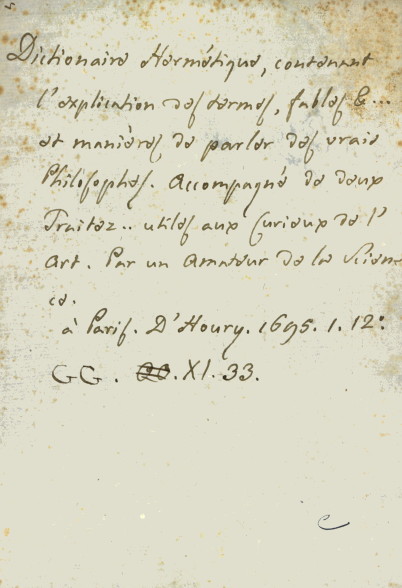 Dictionaire Hermétique, contenant
l'explication des termes, fables &...
et manières de parler des vrais
Philosophes. Accompagné de deux
Traitez.. utiles aux Curieux de l'
Art. Par un Amateur de la Scien-
ce.
à Paris. D'Houry. 1695. 1. 12:
GG. .XI. 33.